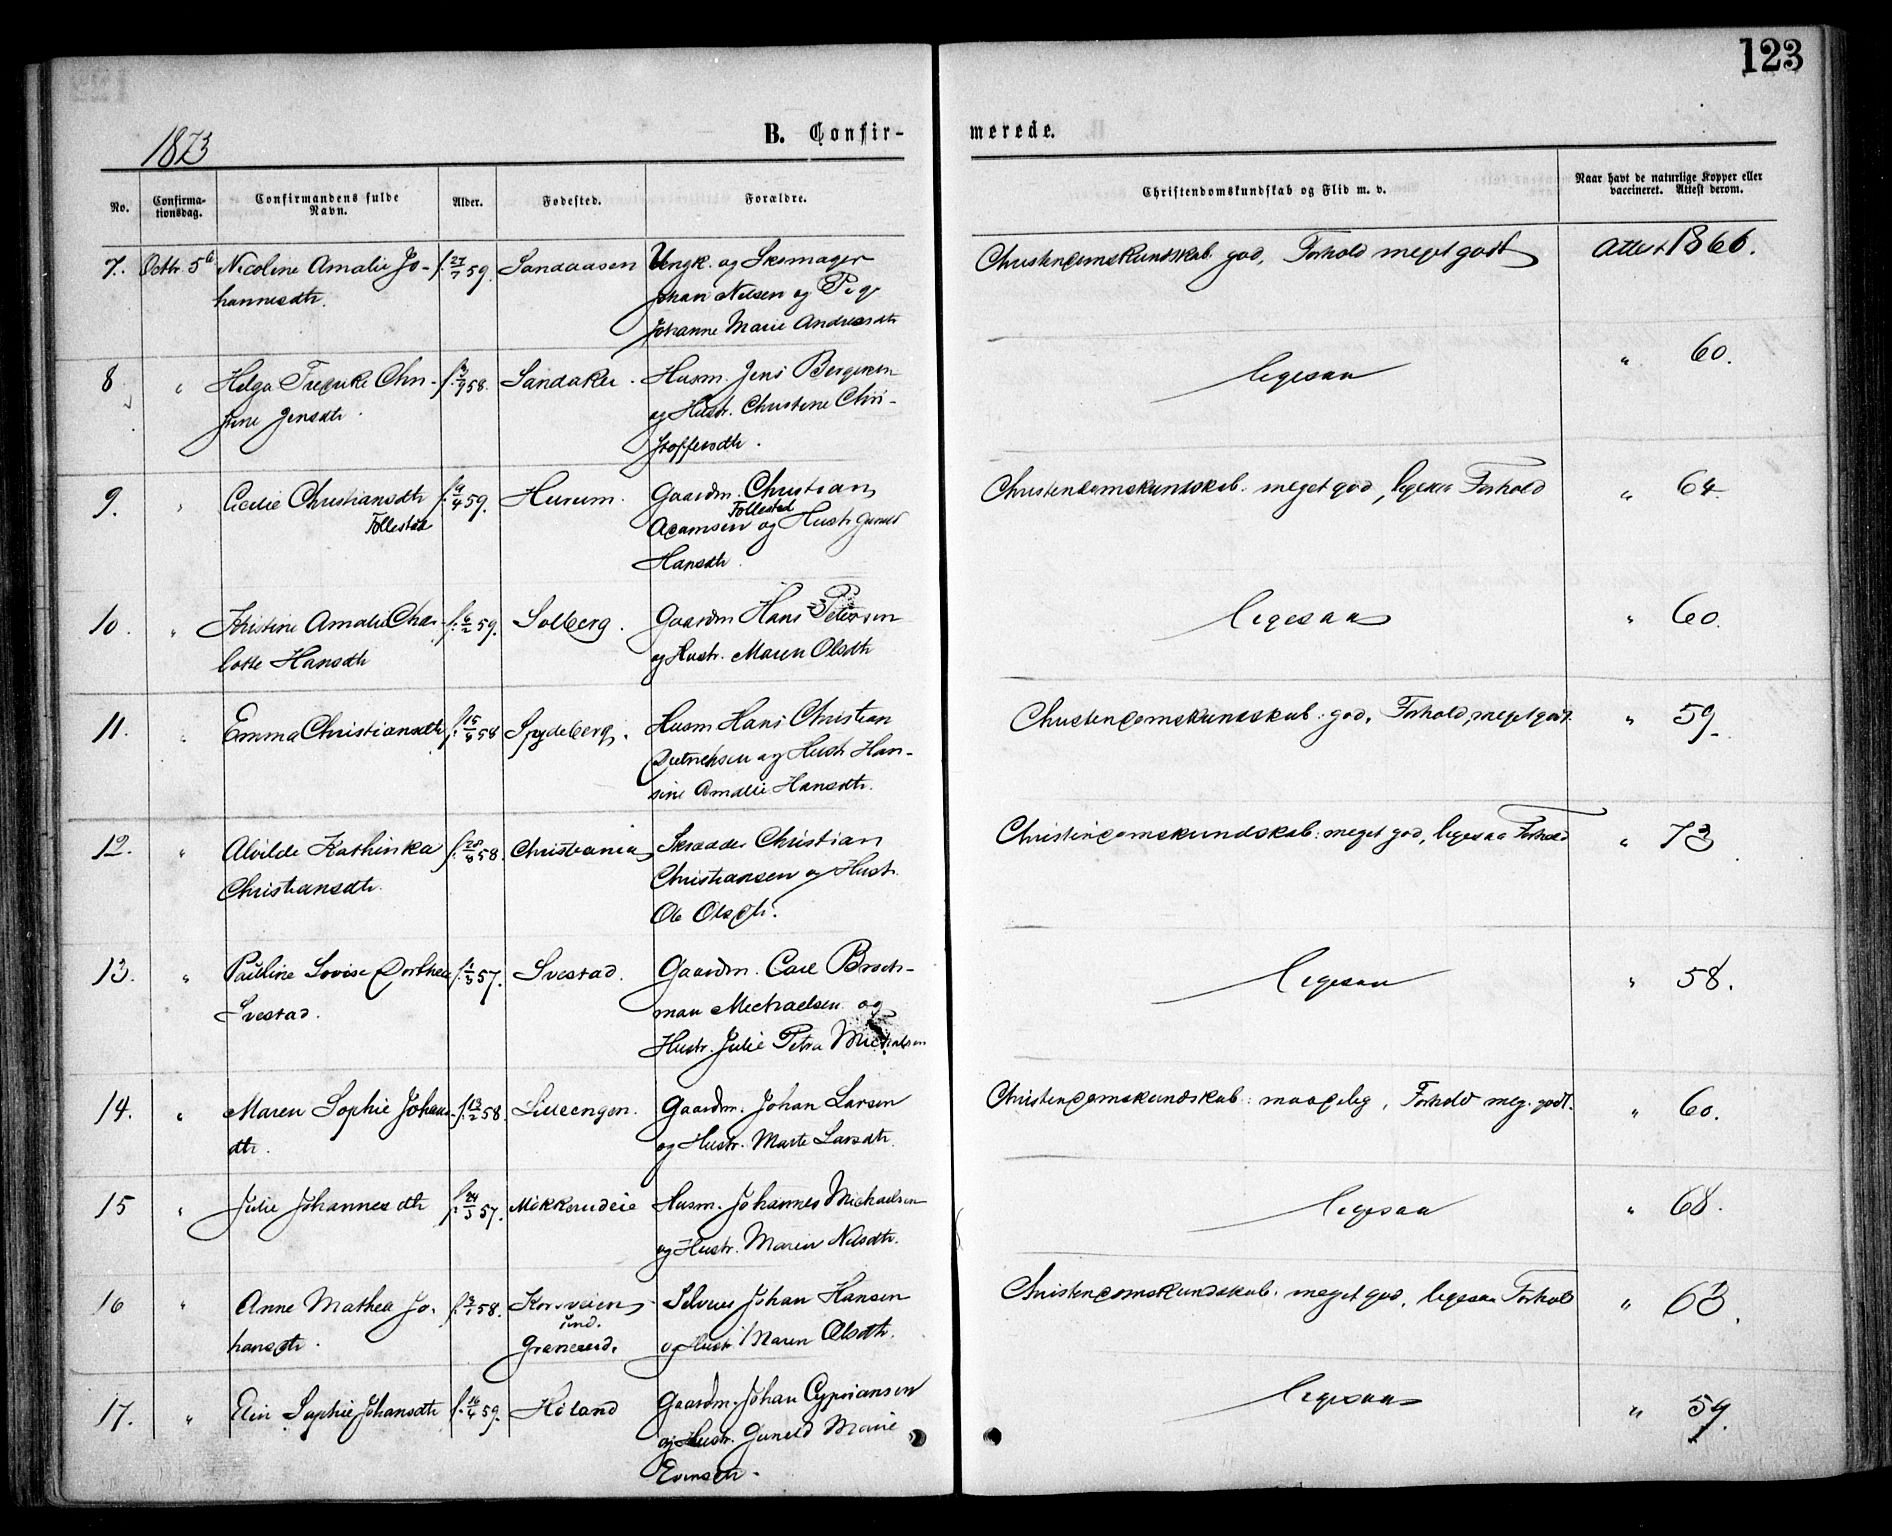 123
1873
B. Confir-
merede.
No.
Confirma-
tionsdag.
Confirmandens fulde
Navn.
Alder.
Fødested.
Forældre.
Christendomskundskab og Flid m. v.
Naar havt de naturlige Kopper eller
vaccineret. Attest derom.
7. Octbr. 5 Nicoline Amalie Jo- f. 27/7 59. Sandaasen Ungk. og Skomager Christendomskundskab god, Forhold meget godt Attest 1866.
hannesdtr. Johan Nilsen og Pige
Johanne Marie Andreasdtr
8 " Helga Fredrike Chri- 58. Sandaker. Husm. Jens Bergersen ligesaa " 60.
stine Jensdtr. og Hustr. Christine Chri-
stoffersdtr.
9. " Cecilie Christiansdtr 59. Hurum. Gaardm. Christian Christendomskundskab. meget god, ligesaa Forhold " 64.
Tollestad Tollestad
Adamsen og Hustr Gunild
Hansdtr.
10. " Kristine Amalie Char- f. 6/2 59. Solberg. Gaardm Hans Petersen ligesaa " 60.
lotte Hansdtr og Hustr. Maren Olsdtr
11. " Emma Christiansdtr 58 Spydeberg. Husm Hans Christian Christendomskundskab: god, Forhold, meget godt. " 59.
Dietrichsen og Hustr Han-
sine Amalie Hansdtr.
12. " Alvilde Kathinka f. 28/8 58. Christiania Skrædder Christian Christendomskundskab: meget god, ligesaa Forhold " 73
Christiansdtr. Christiansen og Hustr.
Olsdtr.
13. " Pauline Lovise Dorthea 57. Svestad. Gaardm. Carl Broch- ligesaa " 58.
Svestad. man Michaelsen og
Hustr. Julie Petra Michalsen
14. " Maren Sophie Johans- f. 13/2 58. Lilleengen. Gaardm. Johan Larsen Christendomskundskab: maadelig, Forhold meg. godt. " 60.
dtr. og Hustr. Marte Larsdtr.
15 " Julie Johannesdtr f. 24/3 57. Mekkerudeie Husm. Johannes Michaelsen ligesaa " 68.
og Hustr. Maren Nilsdtr.
16 " Anne Mathea Jo- 58. Korsveien Selveier Johan Hansen Christendomskundskab. meget god, ligesaa Forhold " 63.
hansdtr. und.
Granerud. og Hustr Maren Olsdtr.
17. " Elin Sophie Johansdtr f. 16/4 59. Høland Gaardm. Johan Cypriansen ligesaa " 59.
og Hustr. Gunild Marie
Evensdtr.